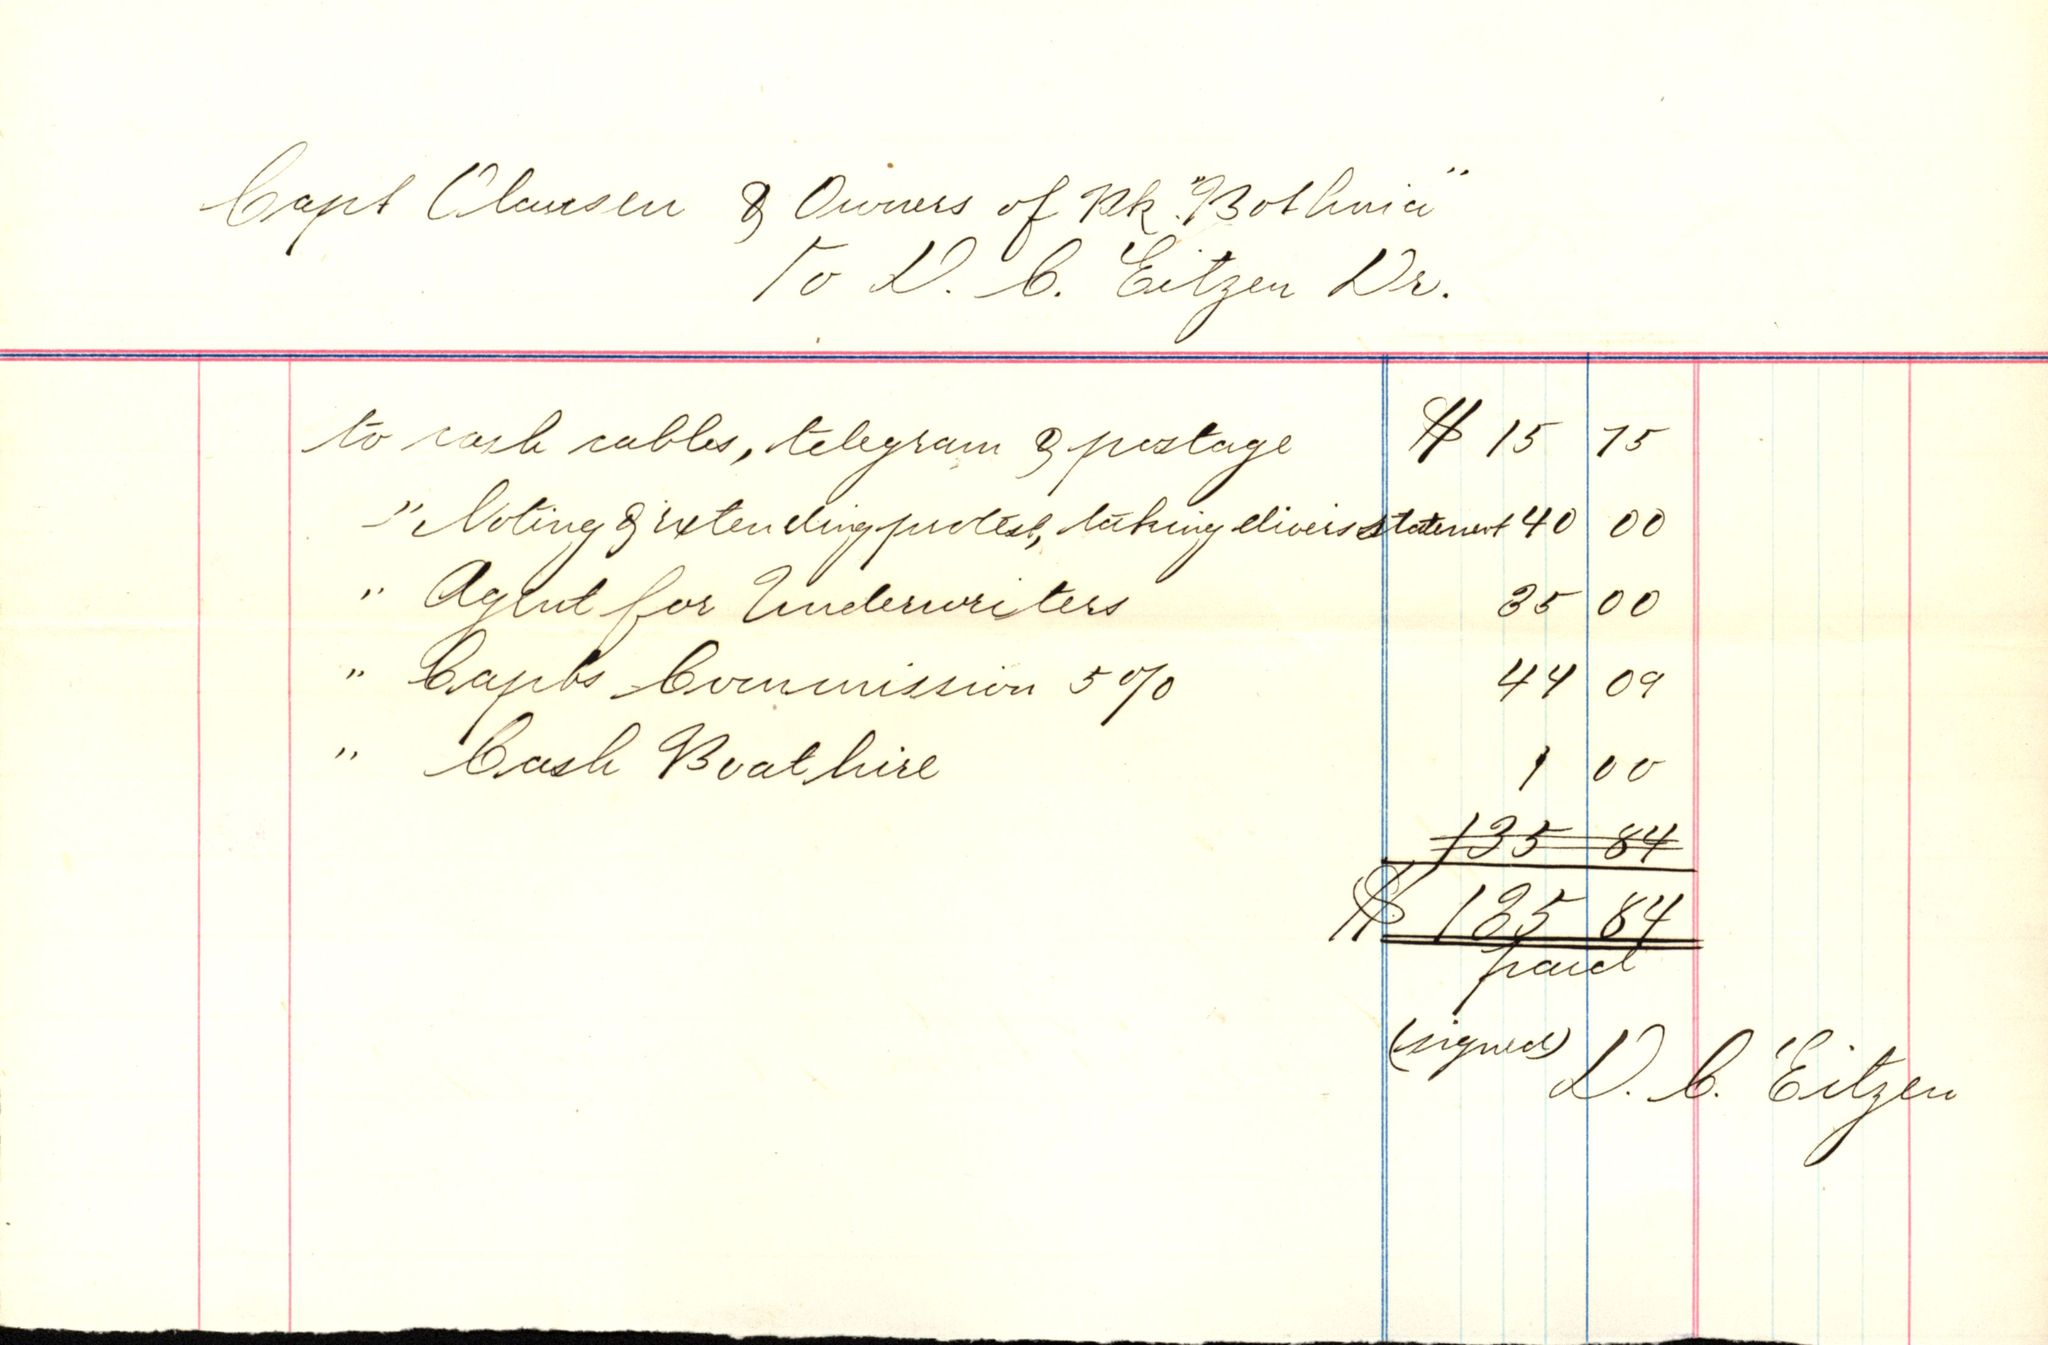 Capt Clausen & Owners of Bk. "Bothnia"
To D. C. Eitzen Dr.
to cash cables, telegram & postage $ 15 75
" Noting & extending protest, taking divers statement 40 00
" Agent for Underwriters 35 00
" Capts Commission 5 % 44 09
" Cash Boat hire 1 00
135 84
$ 135 84
paid
(signed) D. C. Eitzen